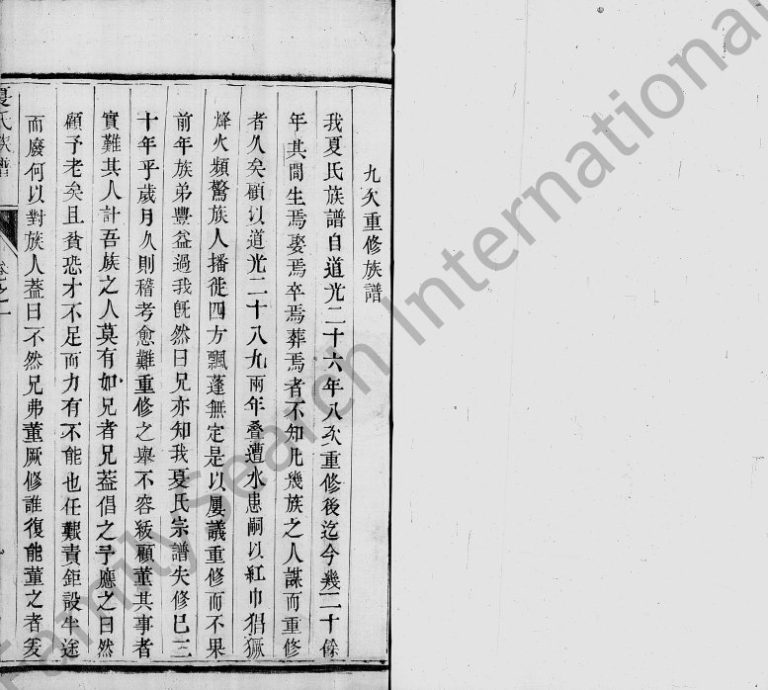 九次重修族譜
我夏氏族譜自道光二十六年八次重修後迄今幾二十餘
年其間生焉娶焉卒焉葬焉者不知凡幾族之人謀而重修
者久矣顧以道光二十八九兩年叠遭水患嗣以紅巾猖獗
烽火頻驚族人播徙四方飄蓬無定是以屢議重修而不果
前年族弟豐益過我旣然曰兄亦知我夏氏宗譜失修已三
十年乎歲月久則稽考愈難重修之舉不容緩顧董其事者
實難其人計吾族之人莫有如兄者兄葢倡之予應之曰然
顧予老矣且貧恐才不足而力有不能也任艱責鉅設半途
而廢何以對族人葢曰不然兄弗董厥修誰復能董之者爰
夏氏族譜
卷之一
Family Search International